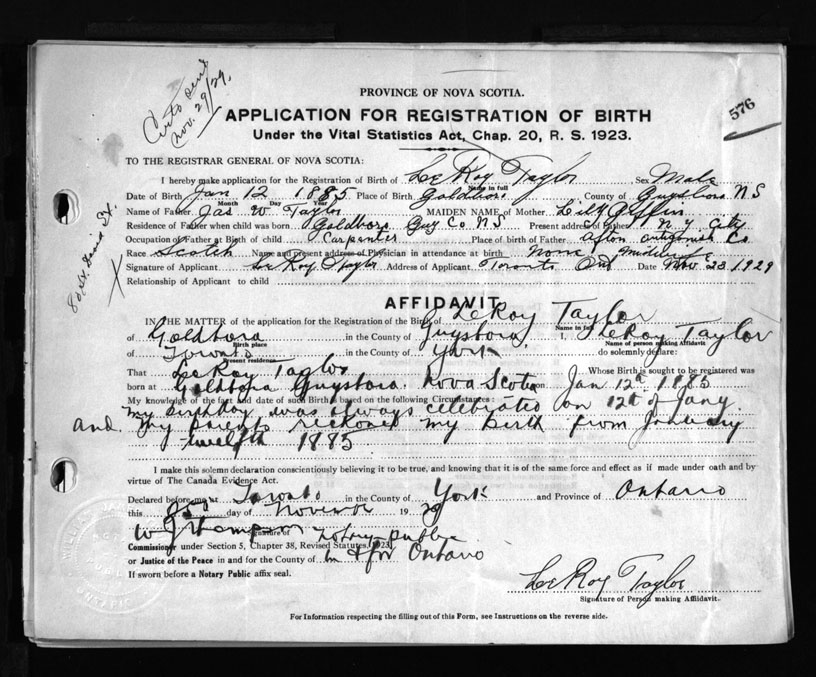 Certo sent
Nov. 29/29.
576
PROVINCE OF NOVA SCOTIA.
APPLICATION FOR REGISTRATION OF BIRTH
Under the Vital Statistics Act, Chap. 20, R. S. 1923.
TO THE REGISTRAR GENERAL OF NOVA SCOTIA:
I hereby make application for the Registration of Birth of LeRoy Taylor Sex Male
Name in full
Date of Birth Jan 12 1885 Place of Birth Goldboro County of Guysboro NS
Month Day Year
Name of Father Jas W Taylor MAIDEN NAME of Mother Giffin
Residence of Father when child was born Goldboro Guy Co NS Present address of Father N Y City
Occupation of Father at Birth of child Carpenter Place of Birth of Father Afton Antigonish Co
Race Scotch Name and present address of Physician in attendance at birth None Midwife
Signature of Applicant LeRoy Taylor Address of Applicant Toronto Ont Date Nov. 23 1929
Relationship of Applicant to child
80 St. St.
AFFIDAVIT
IN THE MATTER of the application for the Registration of the Birth of LeRoy Taylor
Name in full
of Goldbora in the County of Guysbora, I, LeRoy Taylor
Birth place
Name of person making Affidavit
of Toronto in the County of York do solemnly declare:
Present residence
That LeRoy Taylor Whose Birth is sought to be registered was
born at Goldbora Guysbora Nova Scotia on Jan 12th 1885
My knowledge of the fact and date of such Birth is based on the following Circumstances:
my birthday was always celebrated on 12th of Jany.
and my parents reckoned my birth from January
twelfth 1885
I make this solemn declaration conscientiously believing it to be true, and knowing that it is of the same force and effect as if made under oath and by
virtue of The Canada Evidence Act.
Declared before me at Toronto in the County of York and Province of Ontario
this day of November 1929
W J Thompson Notary public
Signature of
Commissioner under Section 5, Chapter 38, Revised Statutes, 1923
or Justice of the Peace in and for the County of in & for Ontario
If sworn before a Notary Public affix seal.
ONTARIO
LeRoy Taylor
Signature of Person making Affidavit.
For Information respecting the filling out of this Form, see Instructions on the reverse side.